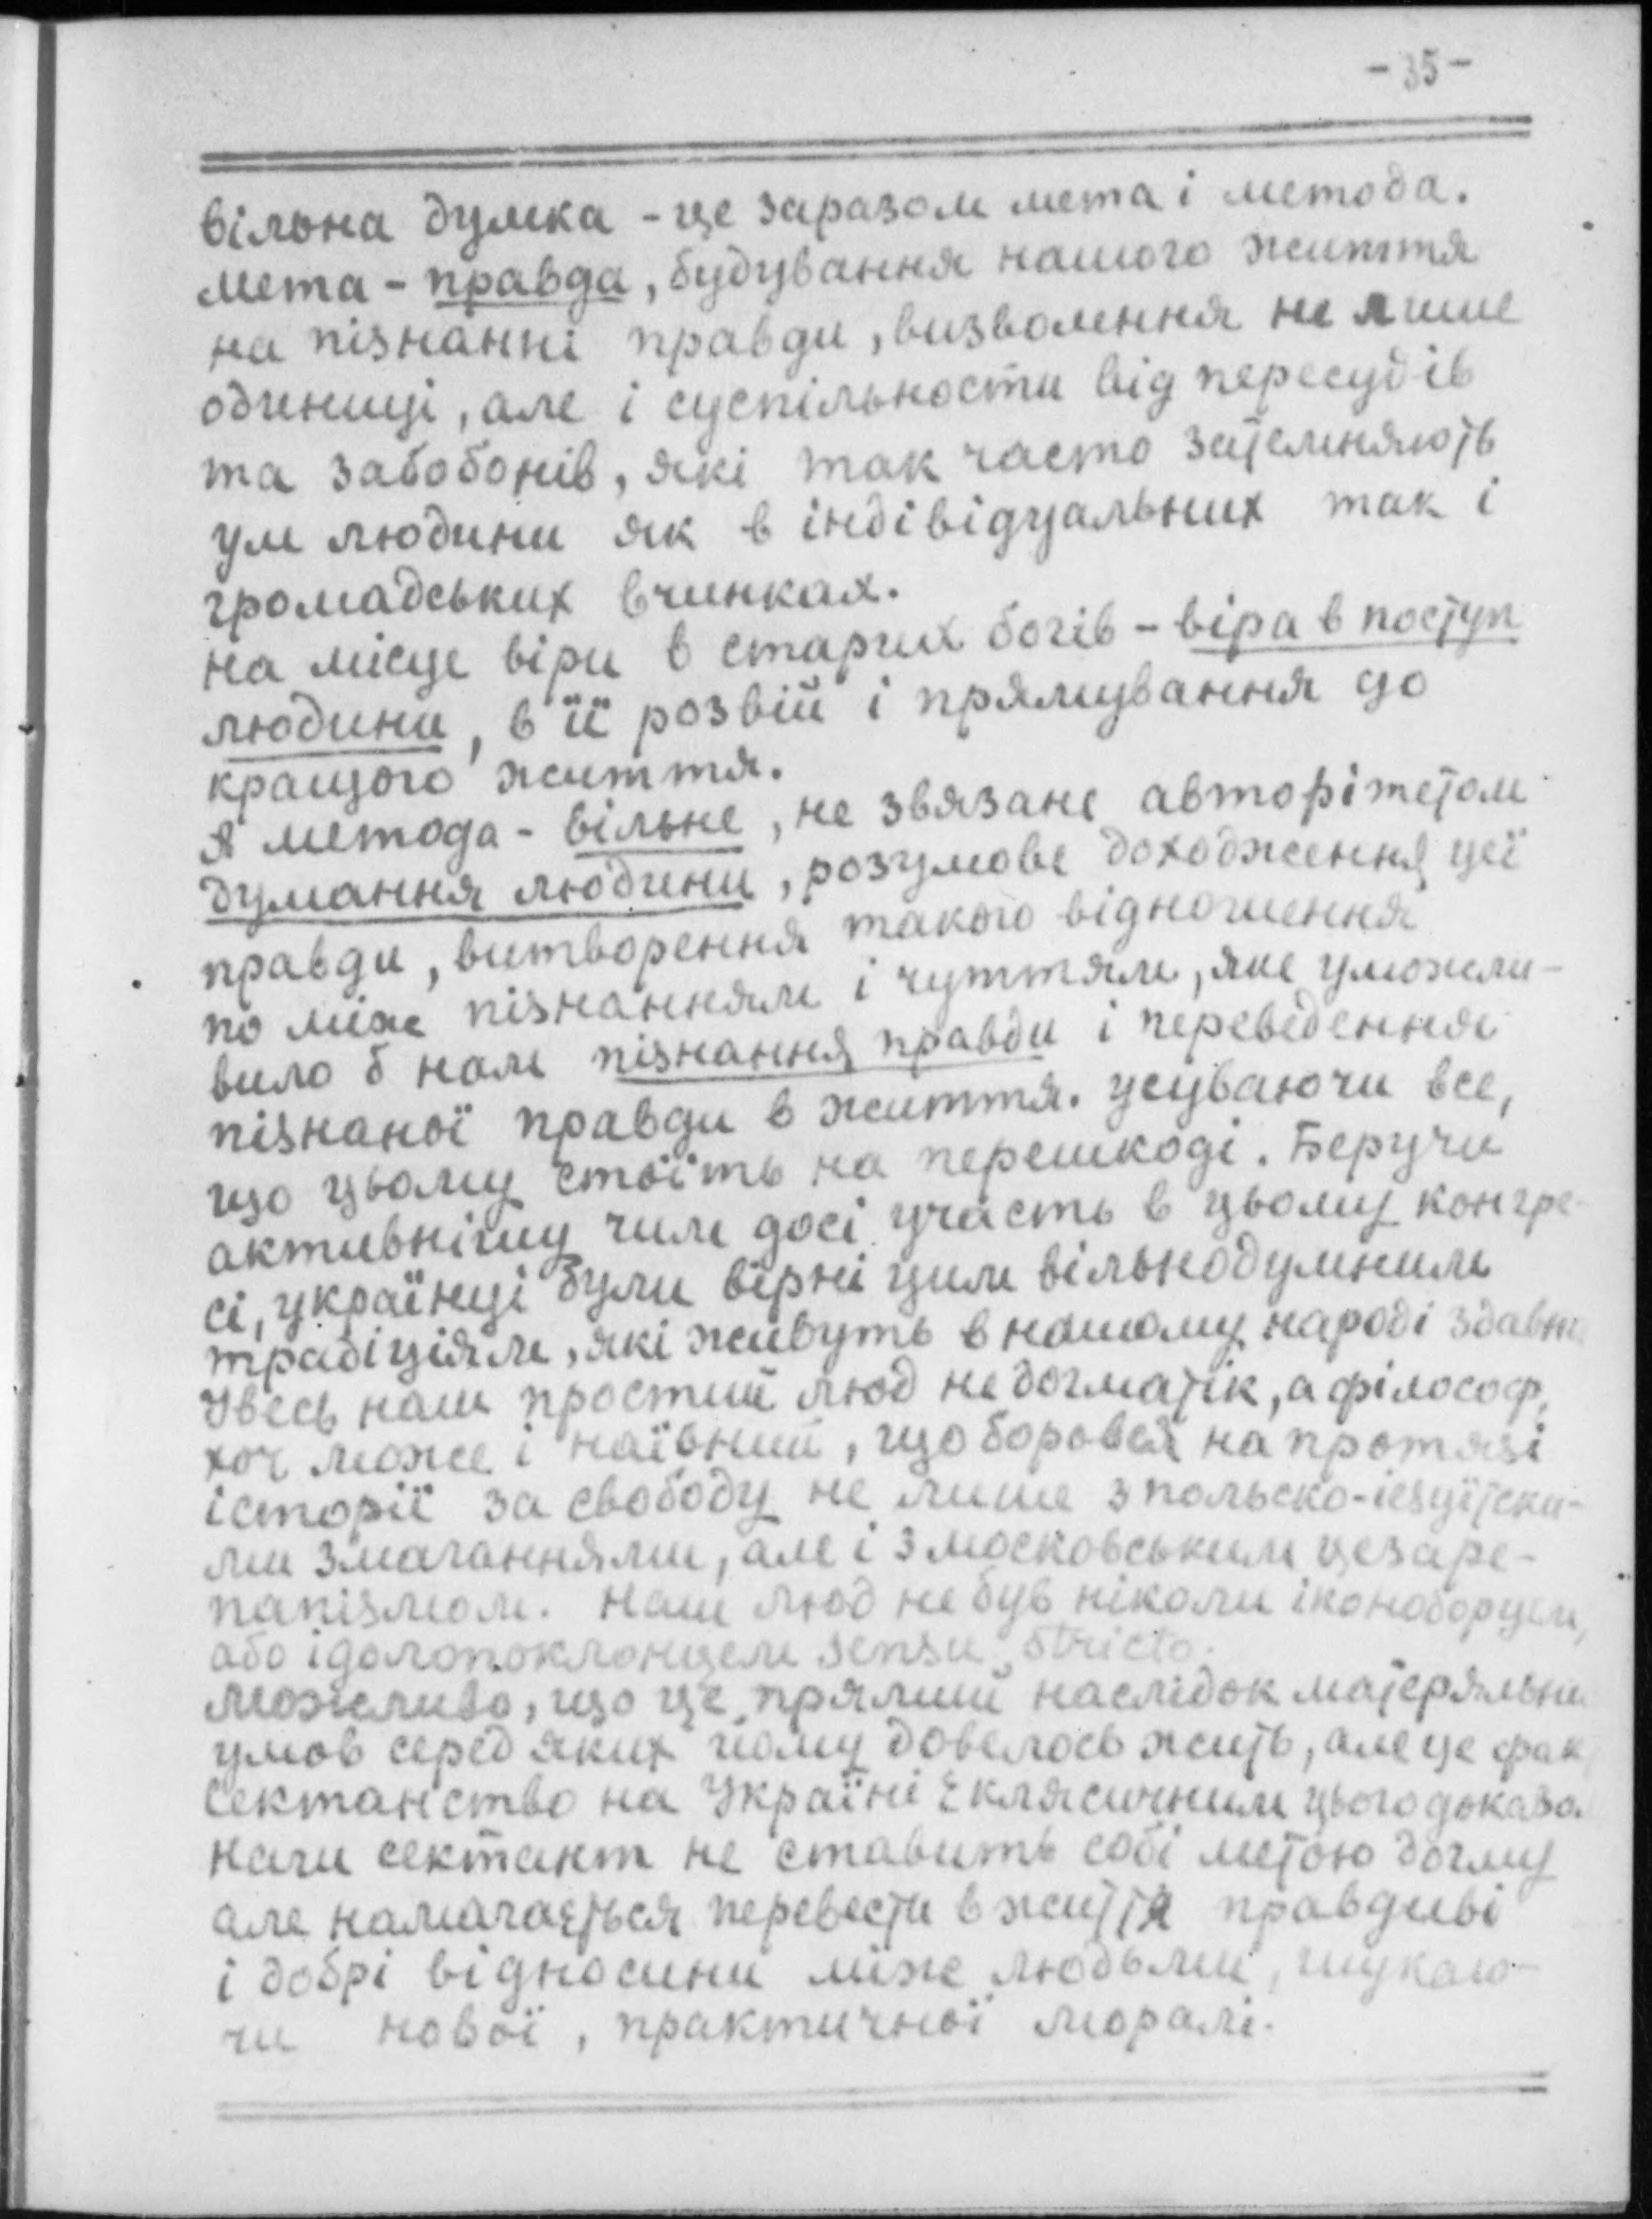 - 35 -
вільна думка - це заразом мета і метода.
мета - правда, будування нашого життя
на пізнанні правди, визволення не лише
одиниці, але і суспільности від пересудів
та забобонів, які так часто затемняють
ум людини як в індівідуальних так і
громадських вчинках.
на місце віри в старих богів - віра в поступ
людини, в її розвій і прямування до
кращого життя.
я метода - вільне, не звязане авторітетом
думання людини, розумове доходження цеї
правди, витворення такого відношення
по між пізнанням і чуттям, яке уможли-
вило б нам пізнання правди і переведення
пізнаної правди в життя. усуваючи все,
що цьому стоїть на перешкоді. Беручи
активнішу чим досі участь в цьому конгре-
сі, українці були вірні цим вільнодумним
традіціям, які живуть в нашому народі здавна
Увесь наш простий люд не догматік, а філософ,
хоч може і наївний, що боровся на протязі
історії за свободу не лише з польсько-іезуїтски-
ми змаганнями, але і з московським цезаре-
папізмом. Наш люд не був ніколи іконоборцем,
або ідолопоклонцем sensu stricto.
можливо, що це прямий наслідок матеряльни
умов серед яких йому довелось жить, але це фак
Сектанство на Україні є клясичним цього доказом
наш сектант не ставить собі метою догму
але намагається перевести в життя правдиві
і добрі відносини між людьми, шукаю-
чи нової, практичної моралі.